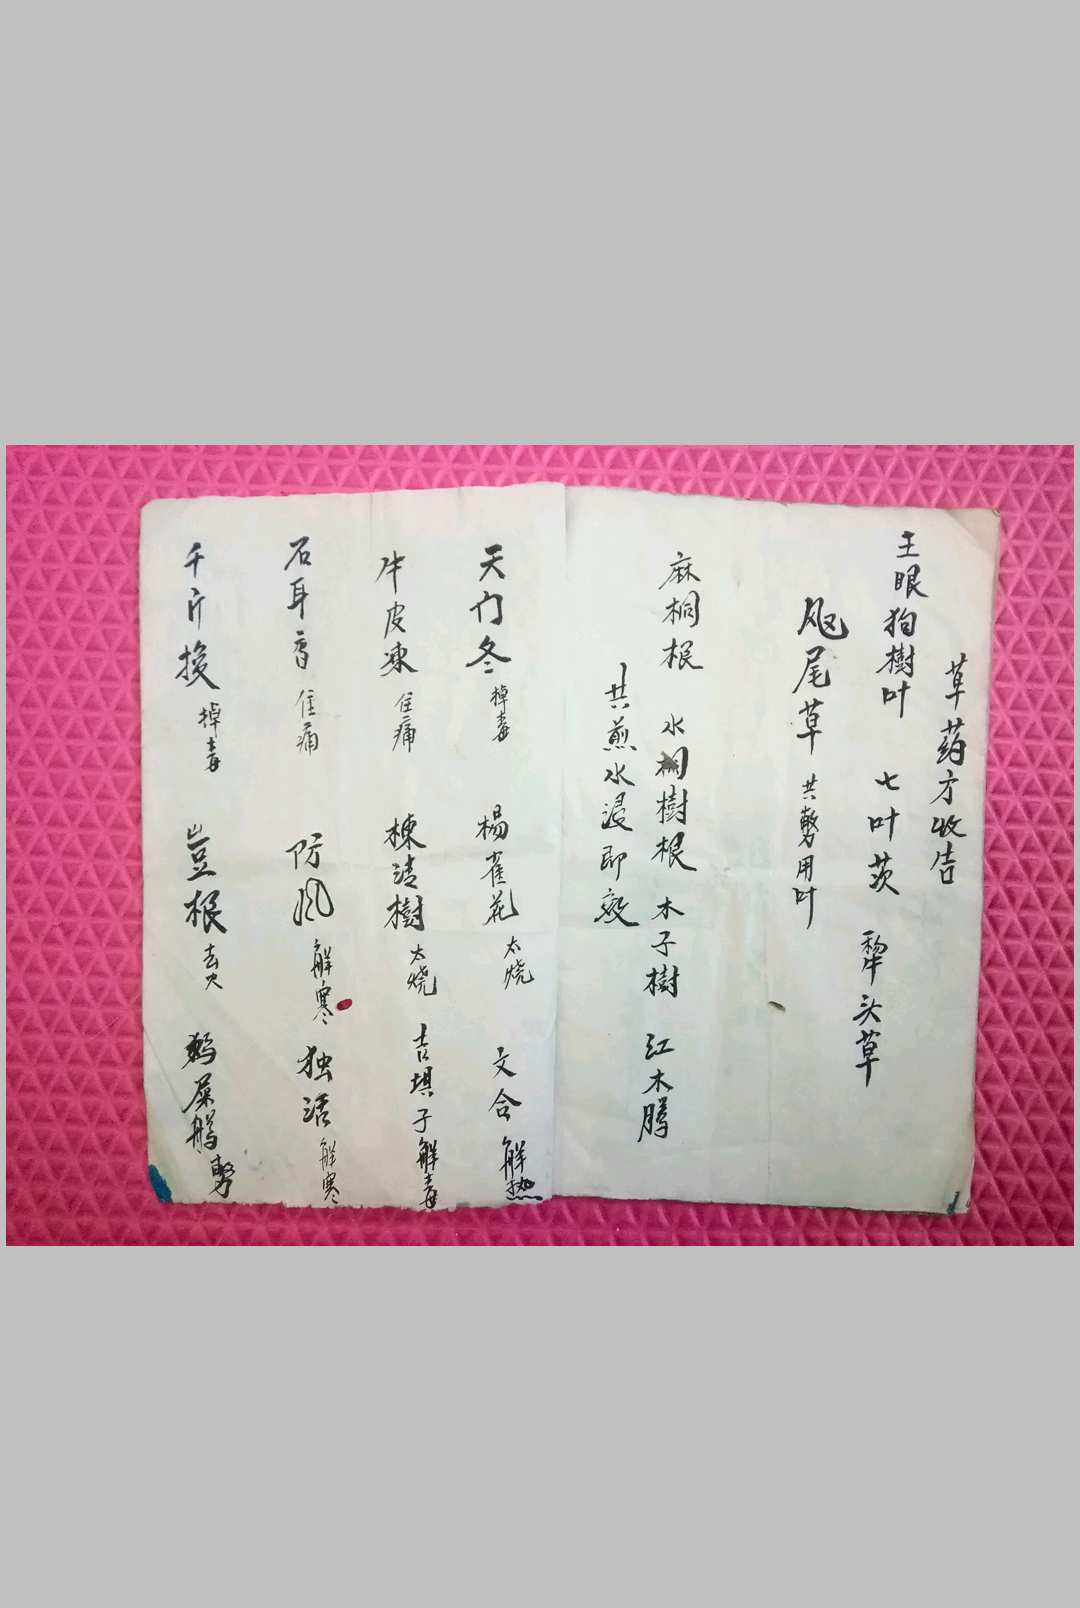 草药方收告
王眼狗樹叶 七叶茨 犂头草
尾草 共 用叶
麻桐根 水桐樹根 木子樹 红木
共煎水浸即
天门冬 掉毒 楊雀花 太烧 文合 解热
牛皮凍 住痛 楝清樹 太烧 吉埧子 解毒
石耳香 住痛 防风 解寒 独活 解寒
千斤换 掉毒 根 去火 鸡屎